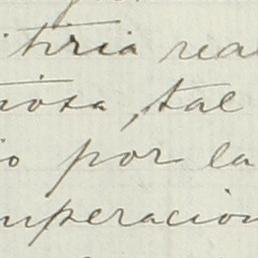 itiria rea
iosa, tal
io por la
mperacion